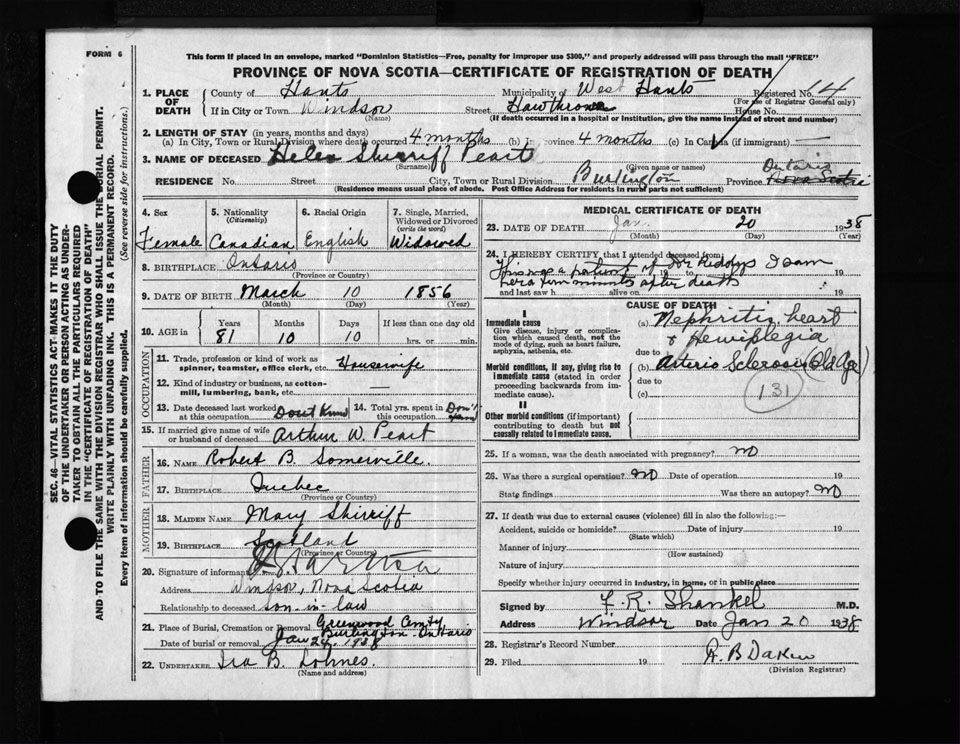 FORM 6
This form if placed in an envelope, marked "Dominion Statistics—Free, penalty for improper use $300," and properly addressed will pass through the mail "FREE"
PROVINCE OF NOVA SCOTIA—CERTIFICATE OF REGISTRATION OF DEATH
SEC. 46—VITAL STATISTICS ACT—MAKES IT THE DUTY
OF THE UNDERTAKER OR PERSON ACTING AS UNDER-
TAKER TO OBTAIN ALL THE PARTICULARS REQUIRED
IN THE "CERTIFICATE OF REGISTRATION OF DEATH"
AND TO FILE THE SAME WITH THE DIVISION REGISTRAR WHO SHALL ISSUE THE BURIAL PERMIT.
WRITE PLAINLY WITH UNFADING INK. THIS IS A PERMANENT RECORD.
Every item of information should be carefully supplied. (See reverse side for instructions).
1. PLACE OF DEATH
County of Hants Municipality of West Hants Registered No. 14
(For use of Registrar General only)
If in City or Town Windsor Street Hawthrone House No.
(Name) (If death occurred in a hospital or institution, give the name instead of street and number)
2. LENGTH OF STAY (in years, months and days)
(a) In City, Town or Rural Division where death occurred 4 months (b) In Province 4 months (c) In Canada (if immigrant) —
3. NAME OF DECEASED Helen Shirriff Peart
(Surname) (Given name or names)
RESIDENCE No. Street City, Town or Rural Division Burlington Province Ontario Nova Scotia
(Residence means usual place of abode. Post Office Address for residents in rural parts not sufficient)
4. Sex Female
5. Nationality (Citizenship) Canadian
6. Racial Origin English
7. Single, Married, Widowed or Divorced (write the word) Widowed
8. BIRTHPLACE Ontario
(Province or Country)
9. DATE OF BIRTH March 10 1856
(Month) (Day) (Year)
10. AGE in Years 81 Months 10 Days 10 If less than one day old hrs. or min.
OCCUPATION
11. Trade, profession or kind of work as spinner, teamster, office clerk, etc. Housewife
12. Kind of industry or business, as cotton-mill, lumbering, bank, etc. —
13. Date deceased last worked at this occupation Dont Know
14. Total yrs. spent in this occupation Don't
15. If married give name of wife or husband of deceased Arthur W. Peart
FATHER
16. NAME Robert B. Somerville.
17. BIRTHPLACE Quebec
(Province or Country)
MOTHER
18. MAIDEN NAME Mary Shirriff
19. BIRTHPLACE Scotland
(Province or Country)
20. Signature of informant
Address Windsor, Nova Scotia
Relationship to deceased son-in-law
21. Place of Burial, Cremation or Removal Greenwood Cemty Burlington Ontario
Date of burial or removal Jan 24, 1938
22. UNDERTAKER Ira B. Lohnes
(Name and address)
MEDICAL CERTIFICATE OF DEATH
23. DATE OF DEATH Jan. 20 1938
(Month) (Day) (Year)
24. I HEREBY CERTIFY that I attended deceased from
This was a patient of Dr. I saw 19
her a few minutes after death
and last saw h alive on 19
CAUSE OF DEATH
I
Immediate cause
Give disease, injury or complication which caused death, not the mode of dying, such as heart failure, asphyxia, asthenia, etc.
(a) Nephritis, heart
& Hemiplegia
due to
Morbid conditions, if any, giving rise to immediate cause (stated in order proceeding backwards from immediate cause).
(b) Arterio Sclerosis (Old Age)
due to
(c)
131
II
Other morbid conditions (if important) contributing to death but not causally related to immediate cause.
25. If a woman, was the death associated with pregnancy? NO
26. Was there a surgical operation? NO Date of operation 19
State findings Was there an autopsy? NO
27. If death was due to external causes (violence) fill in also the following:—
Accident, suicide or homicide? Date of injury 19
(State which)
Manner of injury
(How sustained)
Nature of injury
Specify whether injury occurred in industry, in home, or in public place
Signed by F. R. Shankel M.D.
Address Windsor Date Jan 20 1938
28. Registrar's Record Number
29. Filed 19 A. B Dakin
(Division Registrar)